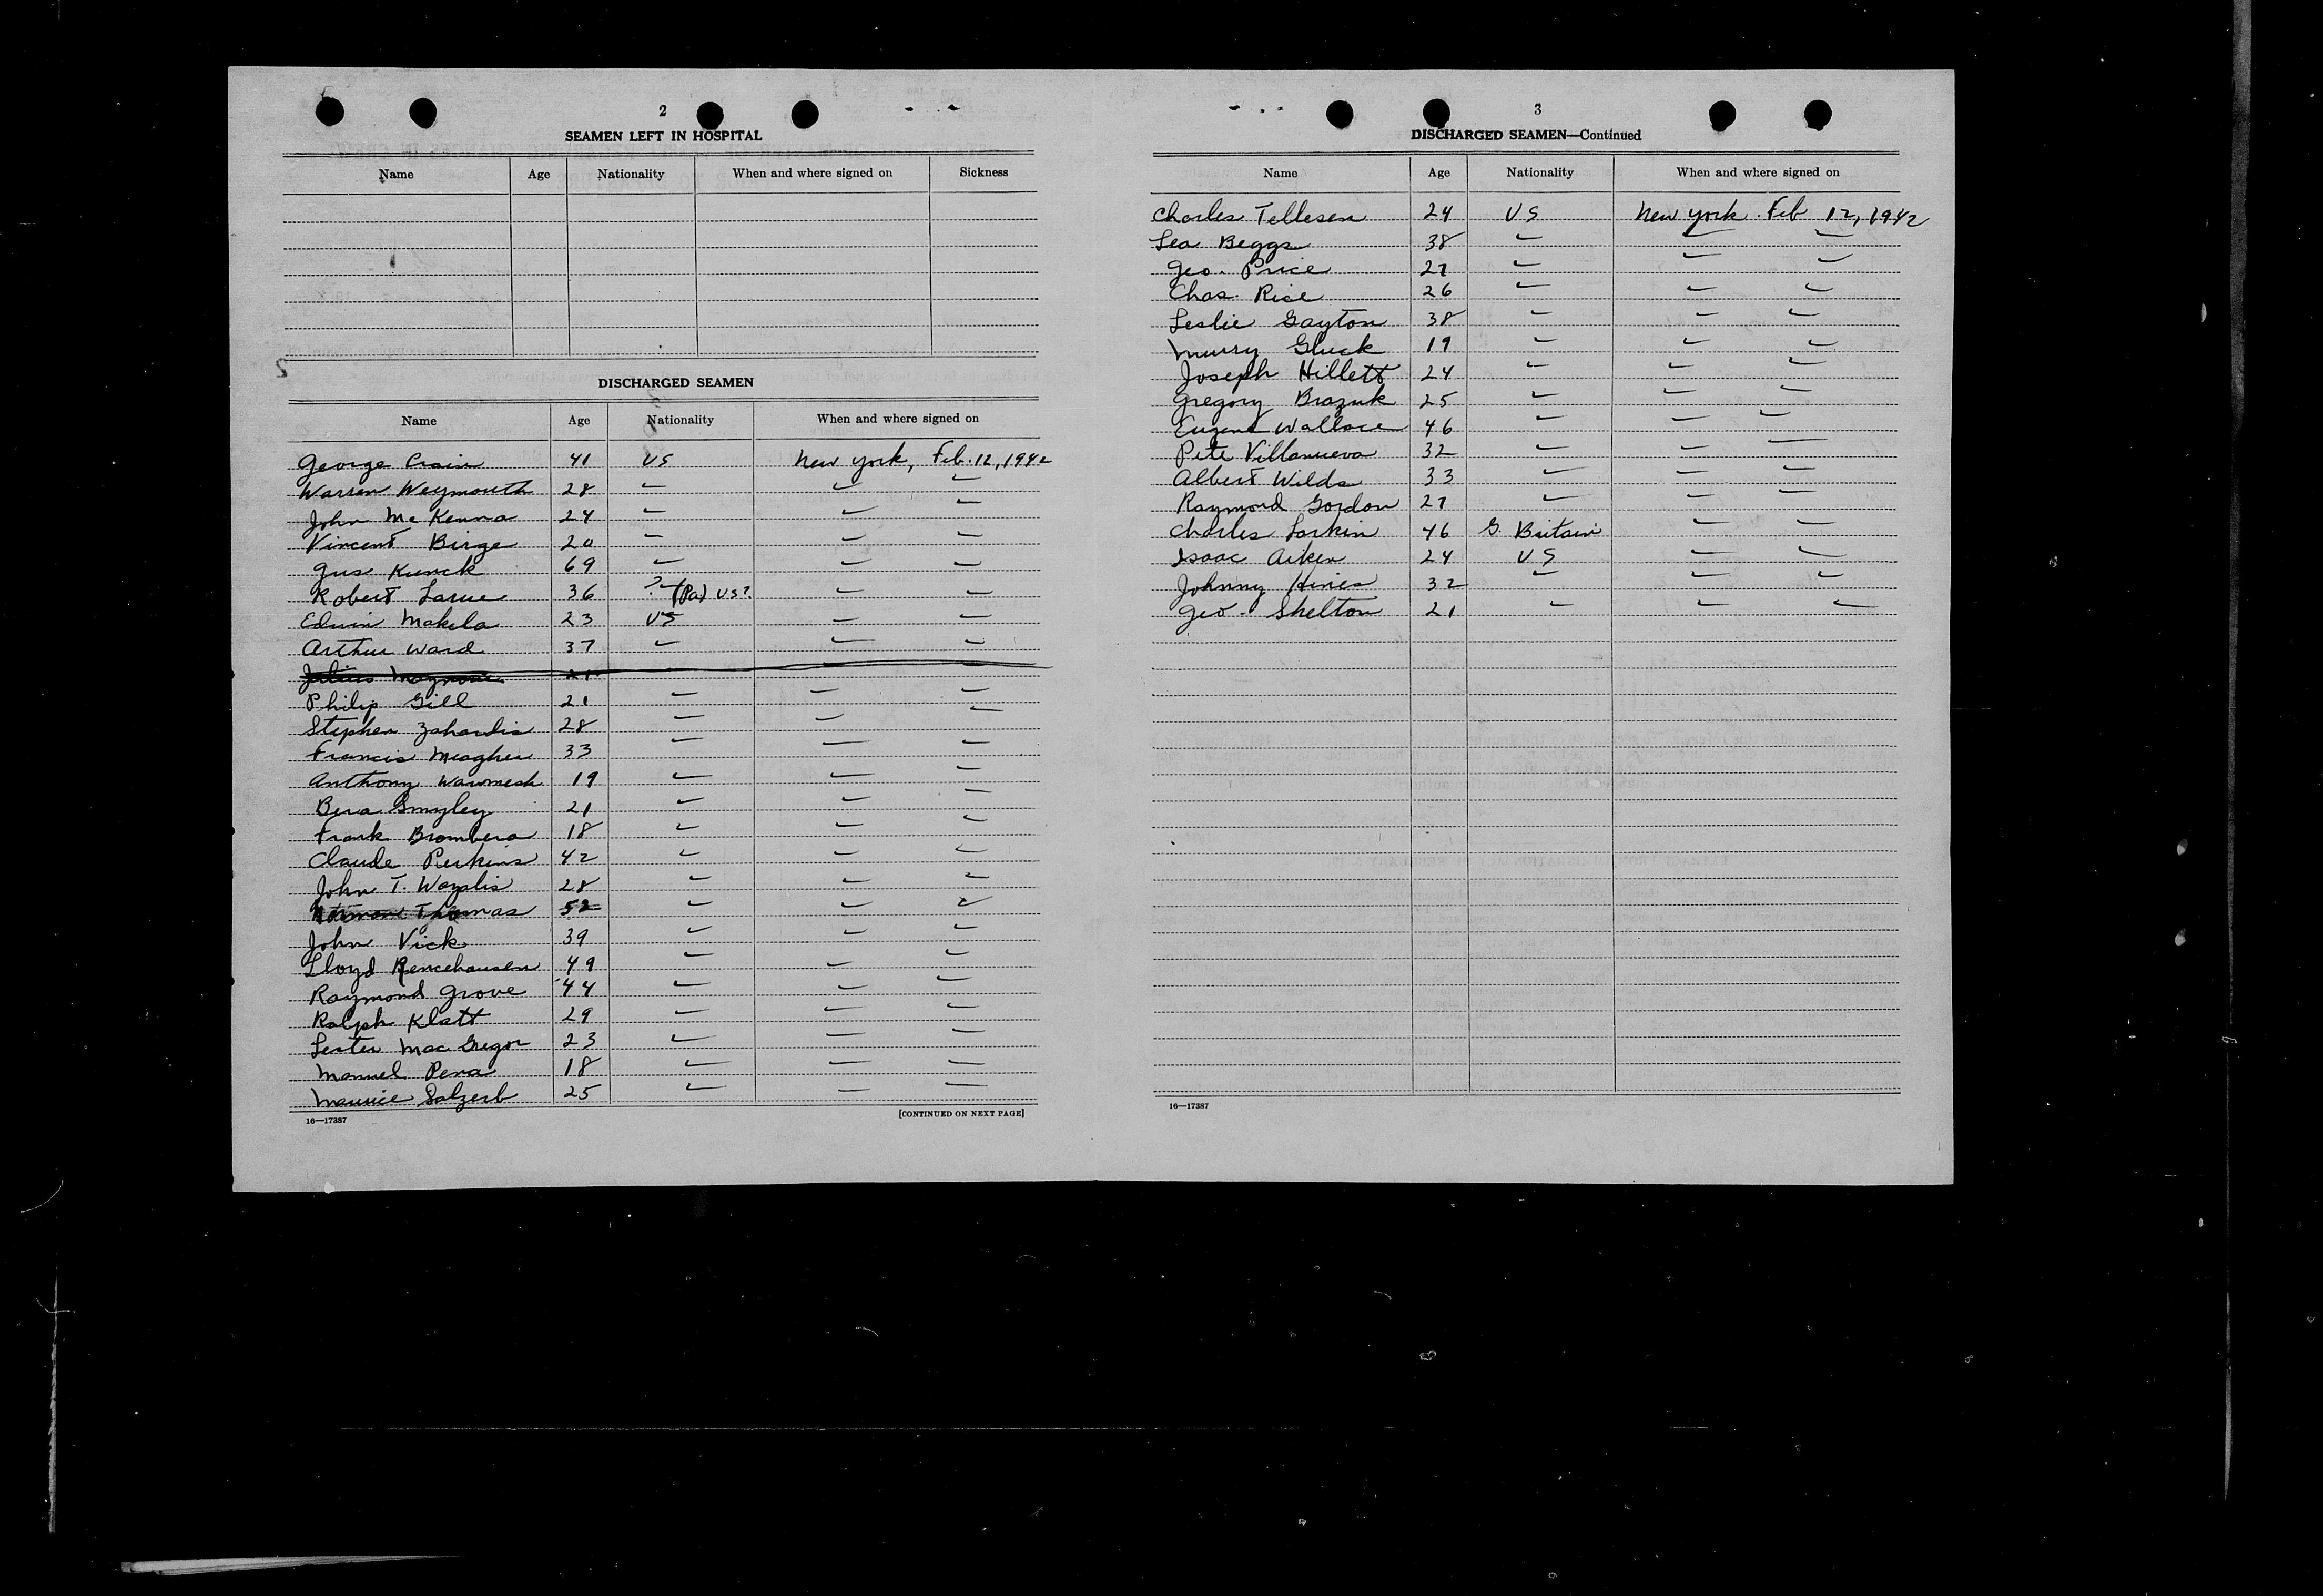 2
SEAMEN LEFT IN HOSPITAL
Name Age Nationality When and where signed on Sickness
DISCHARGED SEAMEN
Name Age Nationality When and where signed on
George Crain 41 US New York, Feb. 12, 1942
Warren Weymouth 28 — — —
John McKenna 24 — — —
Vincent Birge 20 — — —
Gus Kunck 69 — — —
Robert Larue 36 ?—(Pa) US? — —
Edwin Makela 23 US — —
Arthur Ward 37 — — —
Julius 21
Philip Gill 21 — — —
Stephen Zahardis 28 — — —
Francis Meagher 33 — — —
Anthony 19 — — —
Smyley 21 — — —
Frank Brombera 18 — — —
Claude Perkins 42 — — —
John T. Wazalis 28 — — —
Norman Thomas 52 — — —
John Vick 39 — — —
Lloyd Rencehausen 49 — — —
Raymond Grove 44 — — —
Ralph Klatt 29 — — —
Lester Mac Gregor 23 — — —
Manuel Pena 18 — — —
Maurice Salzerb 25 — — —
16—17387
[CONTINUED ON NEXT PAGE]
3
DISCHARGED SEAMEN—Continued
Name Age Nationality When and where signed on
Charles Tellesen 24 US New York Feb 12, 1942
Leo Beggs 38 — — —
Geo. Price 27 — — —
Chas. Rice 26 — — —
Leslie Gayton 38 — — —
Murry Gluck 19 — — —
Joseph Hillett 24 — — —
Gregory Brazuk 25 — — —
Eugene Wallace 46 — — —
Pete Villanueva 32 — — —
Albert Wilds 33 — — —
Raymond Gordon 27 — — —
Charles Larkin 46 G. Britain — —
Isaac Aiken 24 US — —
Johnny Hines 32 — — —
Geo. Shelton 21 — — —
16—17387